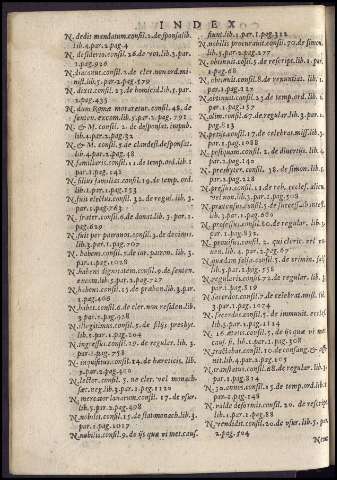 INDEX
N. dedit mandatum.consil.2.de sponsalib.
lib.4.par.2.pag.4
N. desiderio.consil.26.de vot.lib.3.par.
1.pag.926
N. diaconus.consil.2.de cler.non ord.mi
nist.lib.5.par.2.pag.179
N. dixit.consil.23.de homicid.lib.5.par.
2.pag.435
N. dum Romæ moraretur.consil.48.de
senten.excom.lib.5.par.2.pag.792
N. & M. consil. 2. de desponsat. impub.
lib.4.par.2.pag.32
N. & M. consil.5.de clandest.desponsat.
lib.4.par.2.pag.48
N. familiaris.consil.11.de temp.ord.lib.
1.par.1.pag.142
N. filius familias.consil.19.de temp.ord.
lib.1.par.1.pag.153
N. fuit electus.consil.32.de regul.lib.3.
par.1.pag.763
N. frater.consil.6.de donat.lib.3.par.1.
pag.629
N. fuit per patronos.consil.3.de decimis.
lib.3.par.1.pag.707
N. habens.consil.2.de iur.patron.lib.3.
par.1.pag.1028
N. habens dignitatem.consil.9.de senten.
excom.lib.5.par.2.pag.727
N. habens.consil.15.de præben.lib.3.par.
1.pag.406
N. habet.consil.6.de cler.non residen.lib.
3.par.1.pag.928
N. illegitimus.consil.5.de filijs presbyte.
lib.1.par.1.pag.209
N. ingressus.consil.29.de regular. lib.3.
par.1.pag.758
N. inquisitus.consil.14.de hæreticis, lib.
5.par.2.pag.400
N. lector.consil. 3. ne cler. vel monach.
sæc.neg.lib.3.par.1.pag.1120
N. mercator lanarum.consil. 17.de vsur.
lib.5.par.2.pag.498
N. nobilis.consil.15.de stat.monach.lib.3.
par.1.pag.1017
N. nobilis.consil.9.de ijs quæ vi met.caus.
fiunt.lib.1.par.1.pag.312
N. nobilis procurauit.consil.79.de simon.
lib.5.par.2.pag.277
N. obtinuit.consil.5.de rescript.lib.1.par.
1.pag.68
N. obtinuit.consil.8.de renuntiat. lib. 1.
par.1.pag.127
lib.1.
par.1.pag.157
N. olim.consil.67.de regular.lib.3.par.1.
pag.813
N. petijt.consil.17.de celebrat.miss.lib.3.
par.1.pag.1088
N. postquam.consil. 2. de diuortijs. lib.4.
par.2.pag.140
N. presbyter. consil. 38. de simon.lib.5.
par.2.pag.228
N. consil.11.de reb. eccles. alien.
vel non.lib.3.par.1.pag.508
consil.3.de succes.ab intest.
lib.3.par.1.pag.669
N. professus.consil.60.de regular. lib.3.
par.1.pag.832
N. prouisus.consil. 2. qui cleric. vel vo
uen.lib.4.par.2.pag.67
N. quædam solio.consil. 5. de crimin. fals.
lib.5.par.2.pag.358
N. regularis.consil.72.de regular. lib. 3.
par.1.pag.819
N. sacerdos.consil.7.de celebrat.miss.lib.
3.par.1.pag.1074
N. sacerdos.consil. 5. de immunit. eccles.
lib.3.par.1.pag.1114
N. 16. ætatis.consil. 5. de ijs quæ vi met.
caus. fi. lib.1.par.1.pag.308
N. tractabat.consil.10.de consang.& affi-
nit.lib.4.par.2.pag.105
N. transitum.consil.68.de regular. lib.3.
par.1.pag.814
N. consil.15.de temp.ord.lib.1.
par.1.pag.148
N. valde deformis.consil. 20. de rescript.
lib.1.par.1.pag.88
N. vendidit.consil.20.de vsur.lib.5.par.
2.pag.504